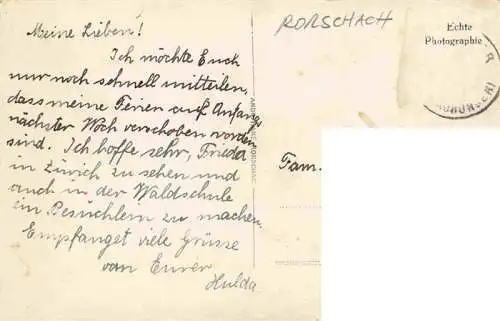 Meine Lieben!
Ich möchte Euch
nur noch schnell mitteilen,
dass meine Ferien auf Anfangs
nächster Woch verschoben worden
sind. Ich hoffe sehr, Frieda
in Zürich zu sehen und
auch in der Waldschule
ein Besüchlern zu machen.
Empfanget viele Grüsse
von Eurer
Hulda
RORSCHACH
Echte
Photographie
Fam.